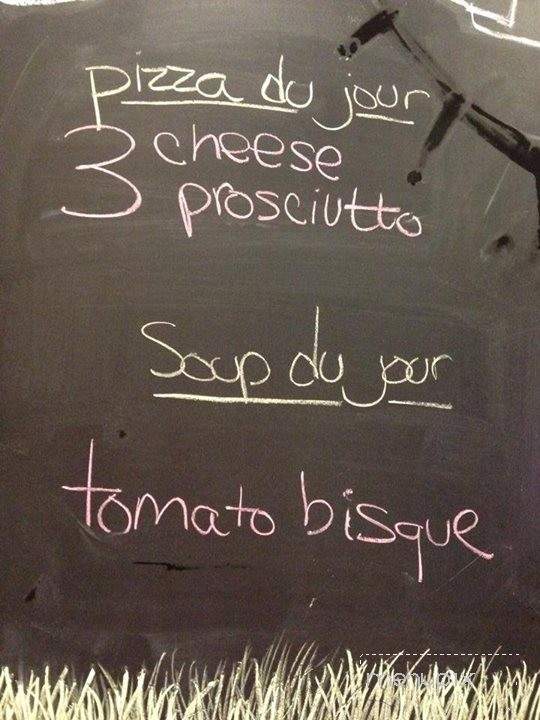 pizza du jour
3 cheese
prosciutto
Soup du jour
tomato bisque